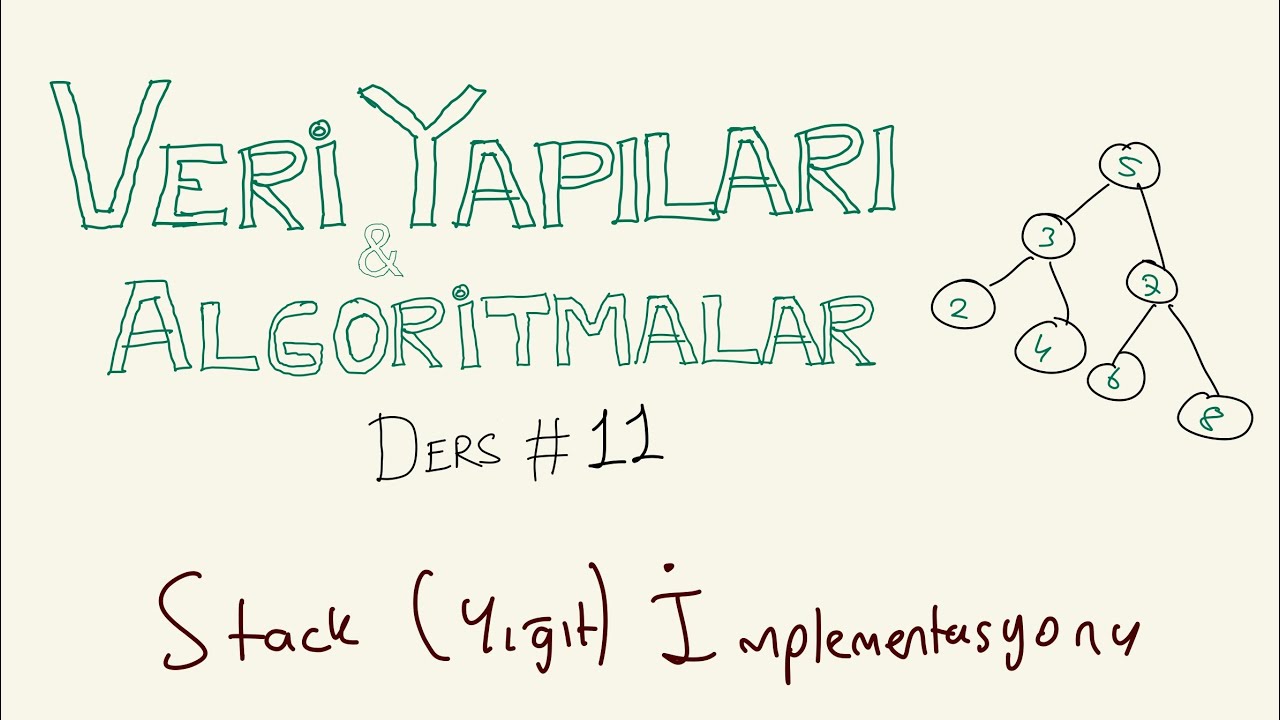 VERİ YAPILARI
&
ALGORİTMALAR
DERS #11
Stack (Yığıt) İmplementasyonu
5
3
7
2
4
6
8